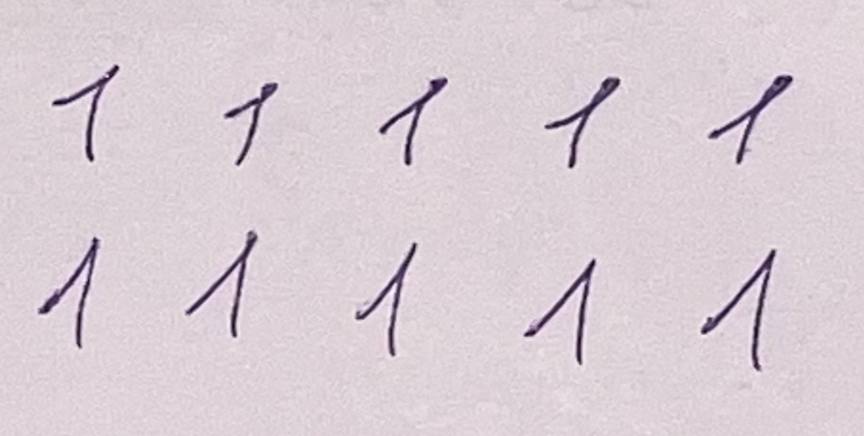 1 1 1 1 1
1 1 1 1 1